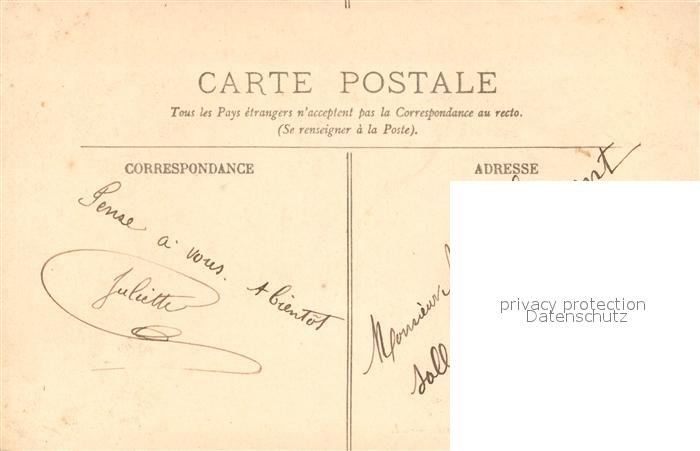 CARTE POSTALE
Tous les Pays étrangers n'acceptent pas la Correspondance au recto.
(Se renseigner à la Poste).
CORRESPONDANCE
Pense à vous. A bientôt
Juliette
ADRESSE
Monsieur
privacy protection
Datenschutz